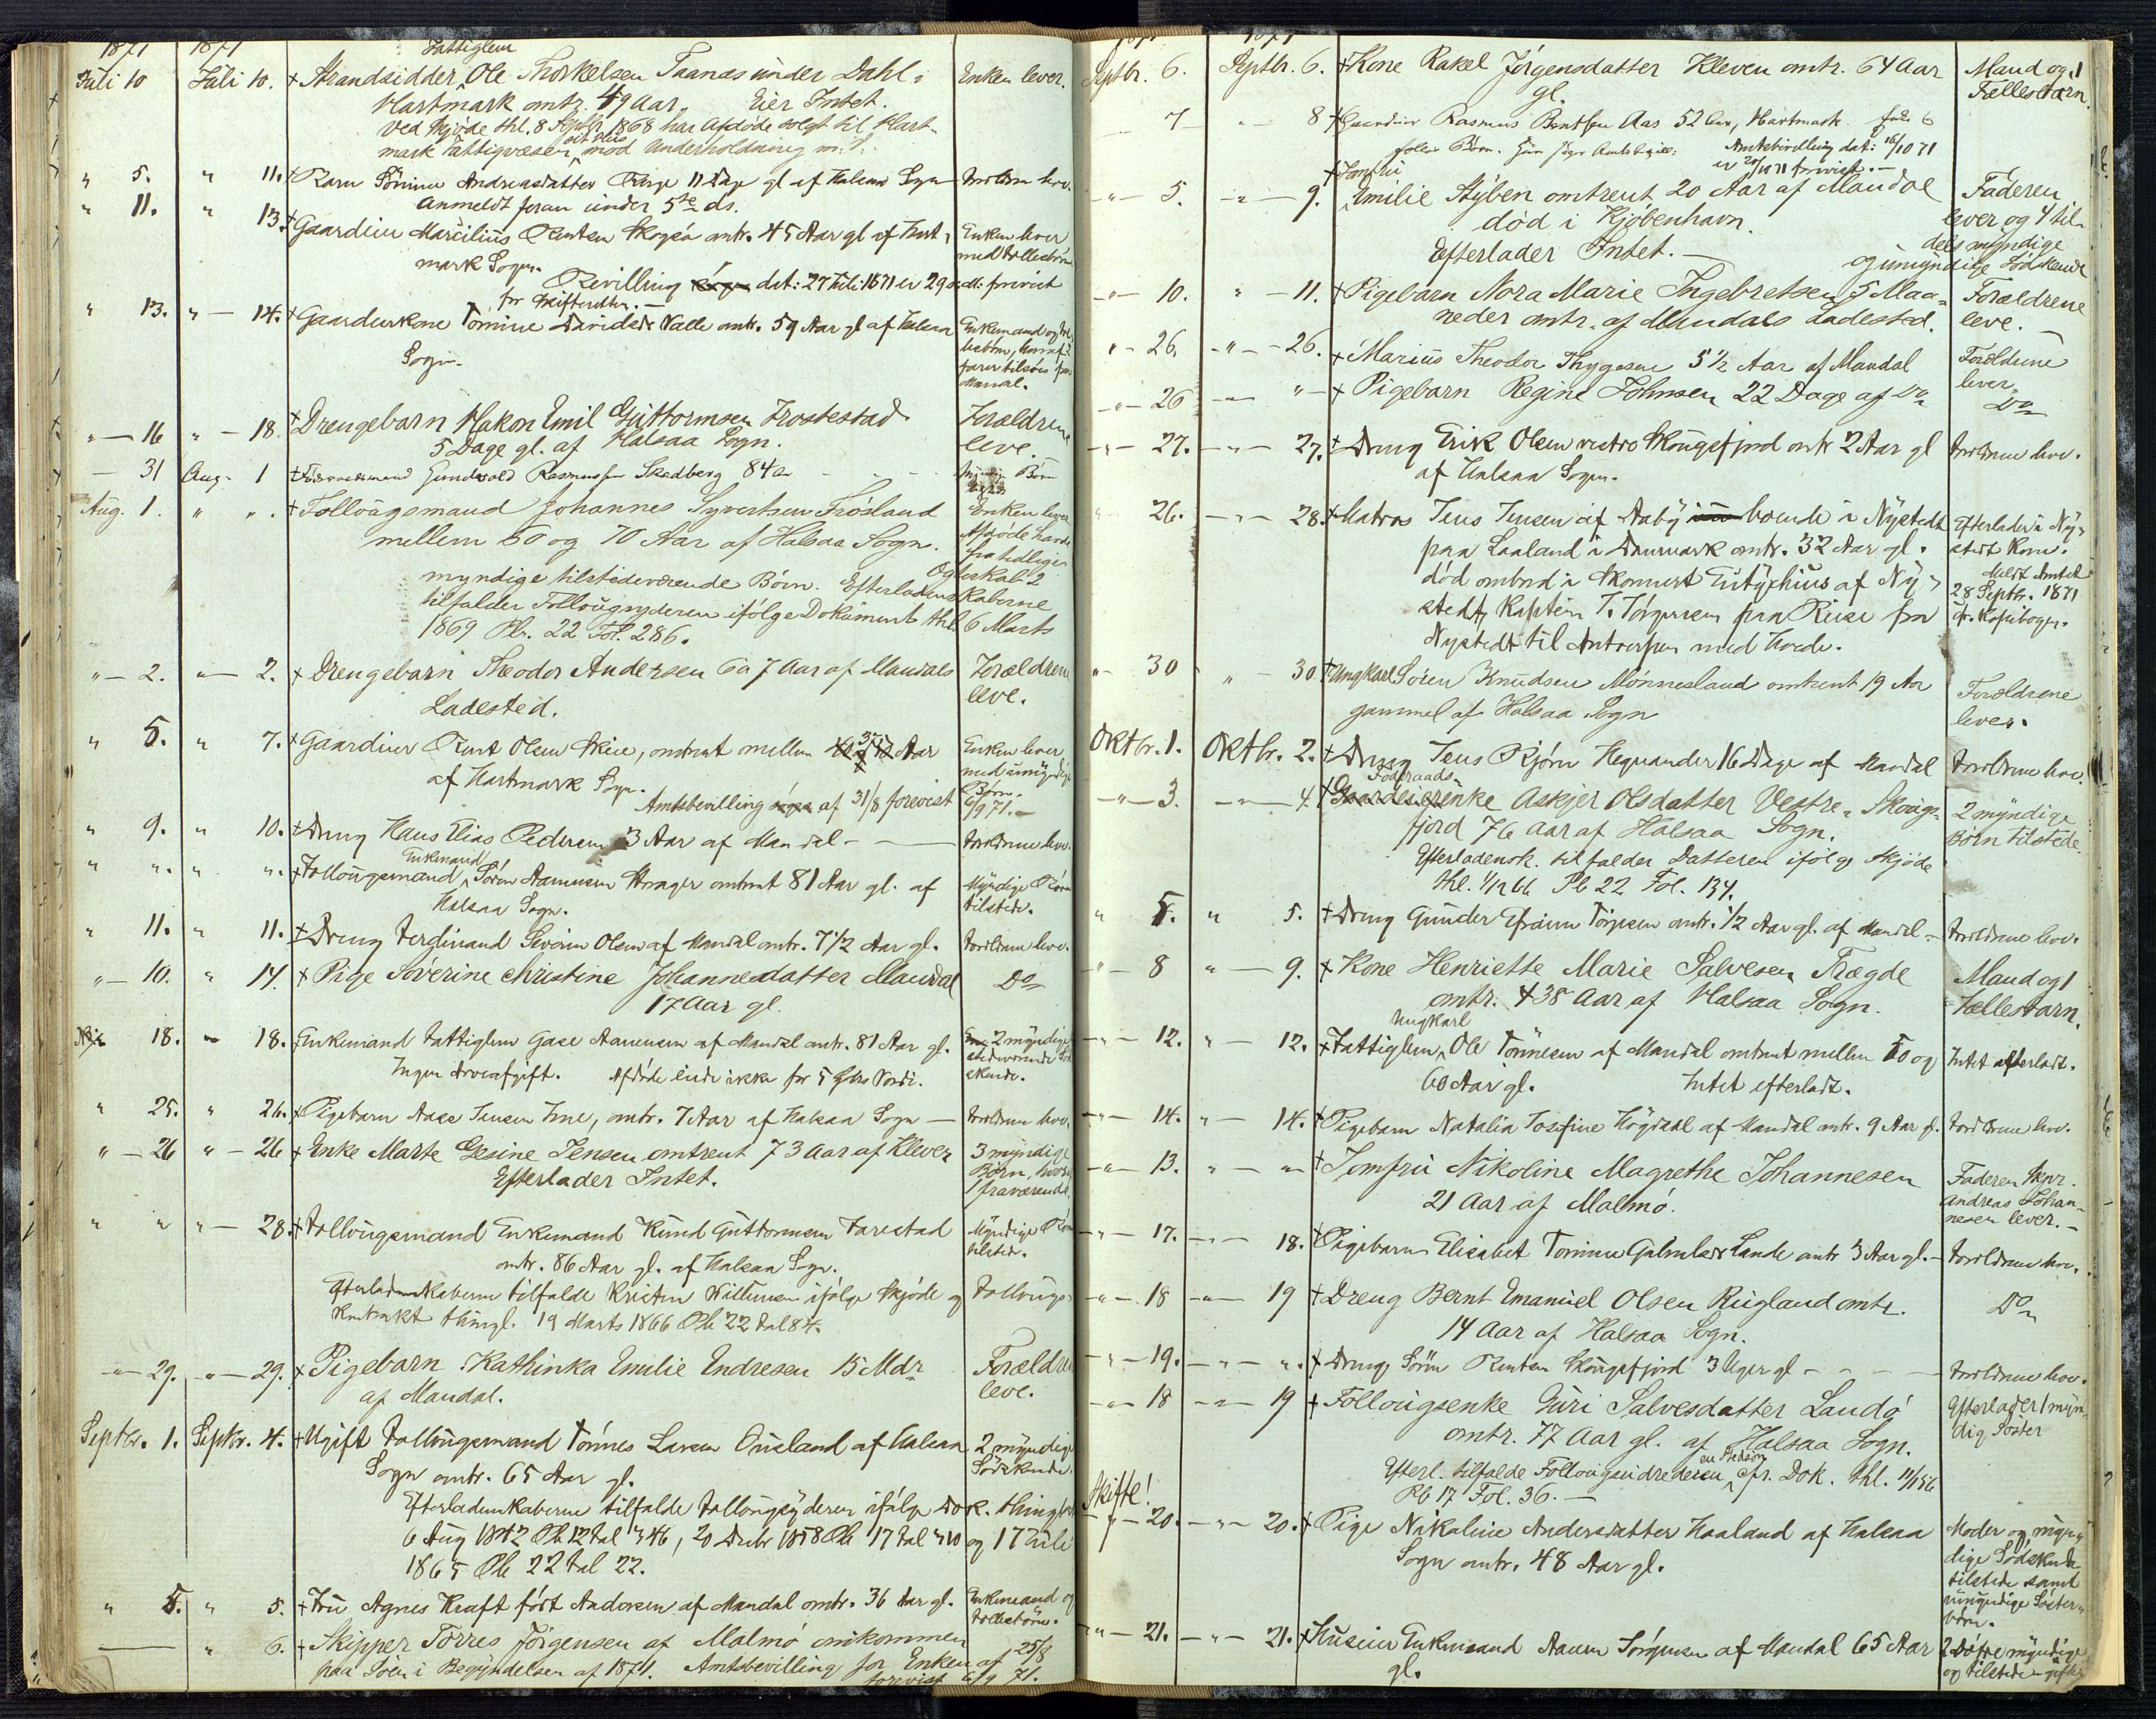 1871 1871 Fattiglem
Juli 10 Juli 10. + Strandsidder, Ole Thorkelsen Taanæs under Dahl- Enken lever.
Hartmark omtr. 49 Aar. Eier Intet.
Ved Skjøde thl. 8 Septbr 1868 har Afdøde solgt til Hart-
mark Fattigvæsen sit Huus mod Underholdning m. V.
" 5. " 11. + Andreasdatter 11 Dage gl af Halsaa Sogn
anmeldt foran under 5te ds.
" 11. " 13. + Gaardbruger Marcilius omtr. 45 Aar gl af Hart- Enken lever
mark Sogn. med Fællesbørn
Bevilling dat: 27 Juli 1871 er 29 s. M. forevist
for Skifteretten. —
" 13. " — 14. + Gaardmandskone Tomine Davidsdr Valle omtr. 59 Aar gl af Halsaa Enkemand og
Sogn.
" — 16 " — 18. + Drengebarn Hakon Emil Guttormsen Frostestad Forældrene
5 Dage gl. af Halsaa Sogn. leve.
— 31 Aug. 1 + Føderaadsmand Gundvald Rasmussen Skadberg 84 Aar Myndige Børn
Aug. 1. " " . + Follougsmand Johannes Syvertsen Frøsland Enken lever
mellem 60 og 70 Aar af Halsaa Sogn. Afdøde havde
fra tidligere
myndige tilstedeværende Børn. Efterladenskaberne Ægteskab 2
tilfalder Follougsyderen ifølge Dokument thl. 6 Marts
1869 Pb. 22 Fol. 286.
" — 2. " — 2. + Drengebarn Theodor Andersen 6 a 7 Aar af Mandals Forældrene
Ladested. leve.
" 5. " 7. + Gaardbruger Bent Olsen Skeie, omtrent mellem Aar Enken lever
af Hartmark Sogn. med umyndige
Børn.
Amtsbevilling af 31/8 forevist 6/9 71. —
" 9. " 10. + Dreng Hans Elias Pedersen 3 Aar af Mandal — Forældrene leve.
" " . " " . + Follougsmand, Enkemand Søren Aanensen omtrent 81 Aar gl. af Myndige Børn
Halsaa Sogn. tilstede.
" 11. " 11. + Dreng Ferdinand Severin Olsen af Mandal omtr. 7 1/2 Aar gl. Forældrene leve.
" — 10. " 14. + Pige Sŏverine Christine Johannesdatter Mandal Do
17 Aar gl.
18. " 18. + Enkemand Fattiglem Gase Aanensen af Mandal omtr. 81 Aar gl. 2 myndige
Ingen Arveafgift. Afdøde eiede ikke for 5 Værdi. Sødskende.
" 25. " 26. + Pigebarn Aase Jensen Ime, omtr. 7 Aar af Halsaa Sogn — Forældrene leve.
" — 26 " — 26 + Enke Marte Gesine Jensen omtrent 73 Aar af Kleven 3 myndige
Efterlader Intet. Børn, hvoraf
1 fraværende
" " " — 28. + Follougsmand Enkemand Knud Guttormsen Farestad Myndige Børn
omtr. 86 Aar gl. af Halsaa Sogn. tilstede.
Efterladenskaberne tilfalde Kristen Willumsen ifølge Skjøde og Follougs-
Kontrakt thingl. 19 Marts 1866 Pb 22 Fol 84.
" 29. " — 29. + Pigebarn Kathinka Emilie Endresen 15 Mdr Forældrene
af Mandal. leve.
Septbr. 1. Septbr. 4. + Ugift Follougsmand Tønnes Larsen Ousland af Halsaa 2 myndige
Sogn omtr. 65 Aar gl. Sødskende.
Efterladenskaberne tilfalde Follougsyderen ifølge Dok. thinglæst
6 Aug 1842 Pb 12 Fol 346, 20 Decbr 1858 Pb 17 Fol og 17 Juli
1865 Pb 22 Fol 22.
" 5. " 5. + Fru Agnes Kraft født Andersen af Mandal omtr. 36 Aar gl. Enkemand og
Fællesbørn.
— " 6. + Skipper Torres Jørgensen af Malmø omkommen
paa Søen i Begyndelsen af 1871. Amtsbevilling for Enken af 25/8
forevist 6/9 71.
1871 1871
Septbr. 6. Septbr. 6. + Kone Rakel Jørgensdatter Kleven omtr. 64 Aar Mand og 1
gl. Fællesbarn.
— 7 — " — 8 + Gaardbruger Rasmus Berntsen Aas 52 Aar, Hartmark.
Børn. Amtsbevilling dat: 16/10 71
er 20/10 71 forevist. —
— " — 5. — " — 9. + Jomfru Emilie Støben omtrent 20 Aar af Mandal Faderen
død i Kjøbenhavn. lever og 4 til-
Efterlader Intet. — dels myndige
og umyndige Sødskende
— " — 10. " — 11. + Pigebarn Nora Marie Ingebretsen 5 Maa- Forældrene
neder omtr. af Mandals Ladested. leve. —
" — 26. — " — 26. + Marius Theodor Thygesen 5 1/2 Aar af Mandal Forældrene
lever.
— " — 26 — " — + Pigebarn Regine Johnsen 22 Dage af Do Do
— " — 27. — " — 27. + Dreng Erik Olsen vestre Skougsfjord omtr 2 Aar gl Forældrene leve.
af Halsaa Sogn.
" 26. — " — 28. + Matros Jens Jensen af Aaby boende i Nystedt Efterlader i Ny-
paa Laaland i Danmark omtr. 32 Aar gl. stedt Kone.
død ombord i Skonnert Eutychius af Ny- Meldt Amtet
stedt, Kaptein J. Jørgensen paa Reise fra 28 Septbr. 1871
Nystedt til Antverpen med Hvede. cfr. Kopibogen.
" — 30 " — 30. + Ungkarl Søren Knudsen Mønnesland omtrent 19 Aar Forældrene
gammel af Halsaa Sogn lever.
Oktbr. 1. Oktbr. 2. + Dreng Jens Bjørn Heqvander 16 Dage af Mandal Forældrene leve.
— " — 3. — " — 4. + Føderaads- enke Askjer Olsdatter Vestre- Skougs- 2 myndige
fjord 76 Aar af Halsaa Sogn. Børn tilstede.
Efterladensk. tilfalder Datteren ifølge Skjøde
thl. 1/12 66 Pb 22 Fol. 134.
" 5. " 5. + Dreng Gunder Efraim Tørresen omtr. 1/2 Aar gl. af Mandal — Forældrene leve.
— " — 8 " — 9. + Kone Henriette Marie Salvesen Trægde Mand og 1
omtr. 38 Aar af Halsaa Sogn. Fællesbarn.
— " — 12. " — 12. + Fattiglem, Ungkarl Ole Tønnesen af Mandal omtrent mellem 50 og Intet efterladt.
60 Aar gl. Intet efterladt.
— " — 14. " — 14. + Pigebarn Natalia Josefine Høgdahl af Mandal omtr. 9 Aar gl. Forældrene leve.
— " — 13. " — " + Jomfru Nikoline Magrethe Johannesen Faderen Skpr.
21 Aar af Malmø. Andreas Johan-
nesen lever. —
— " — 17. — " — 18. + Pigebarn Elisabet Tomine Lande omtr 3 Aar gl. — Forældrene leve.
— " — 18 — " — 19 + Dreng Bernt Emanuel Olsen Rugland omtr. Do
14 Aar af Halsaa Sogn.
— " — 19. — " — " . + Dreng Søren Bentsen Skougsfjord 3 Uger gl — — Forældrene leve.
— " — 18 — " — 19 + Follougsenke Guri Salvesdatter Landø Efterlader 1 myn-
omtr. 77 Aar gl. af Halsaa Sogn. dig Søster
Efterl. tilfalde Follougsudrederen, en Stedsøn cfr. Dok. thl. 11/1 56
Pb 17 Fol. 36. —
Skifte!
— " — 20. — " — 20. + Pige Nikoline Andersdatter Haaland af Halsaa Moder og myn-
Sogn omtr. 48 Aar gl. dige Sødskende
tilstede samt
umyndige Søster-
børn.
— " — 21. — " — 21. + Husmand Enkemand Aanen Jørgensen af Mandal 65 Aar 2 Døtre myndige
gl. og tilstede — gifte